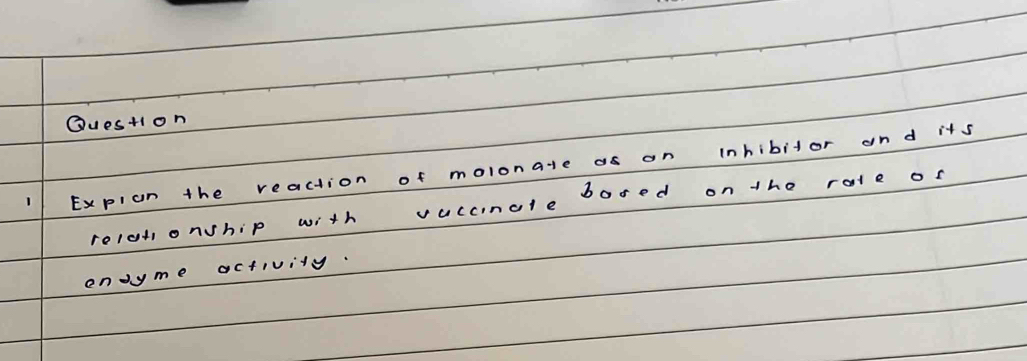 Question
1 Explan the reaction of malonate as an inhibitor and its
relationship with succinate based on the rate of
enzyme activity.